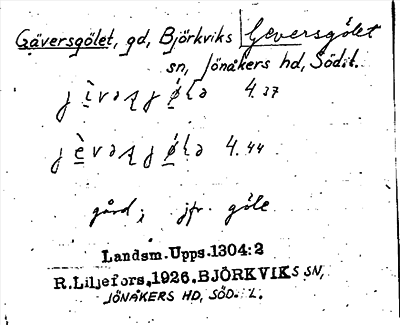 Gäversgölet, gd, Björkviks Geversgölet
sn, Jönåkers hd, Södit.
4.37
4.44
gård; jfr. göle
Landsm.Upps.1304:2
R.Liljefors.1926.BJÖRKVIKS SN,
JÖNÅKERS HD, SÖD. L.